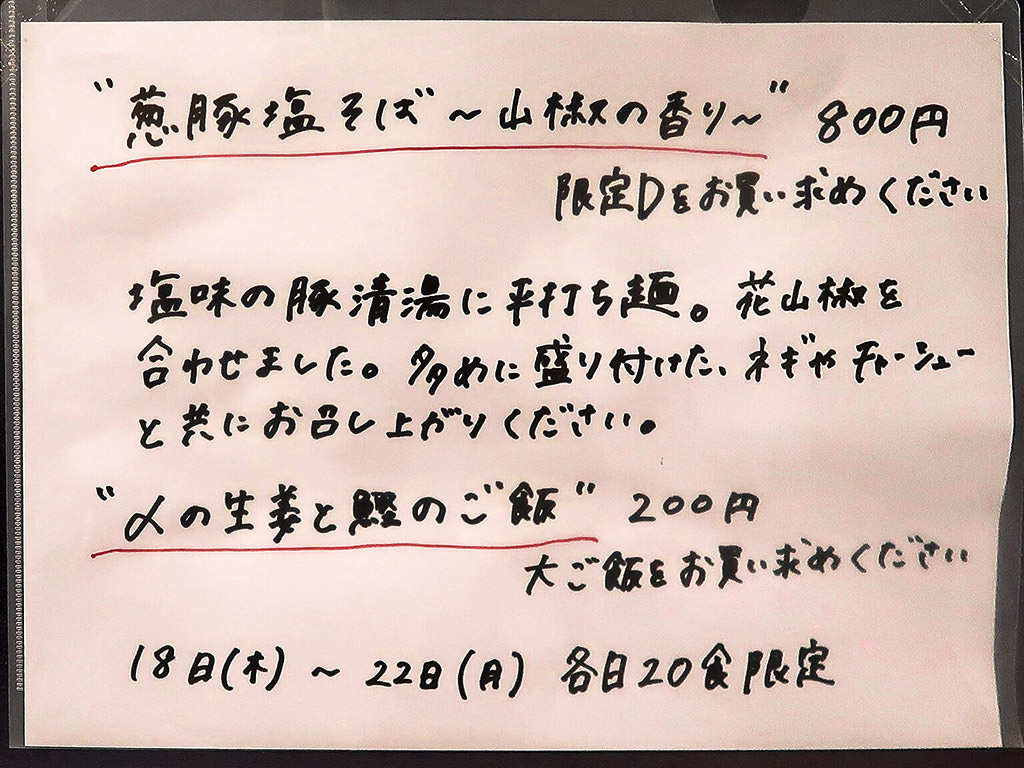 "葱豚塩そば～山椒の香り～" 800円
限定Dをお買い求めください
塩味の豚清湯に平打ち麺。花山椒を
合わせました。多めに盛り付けた、ネギやチャーシュー
と共にお召し上がりください。
"〆の生姜と鰹のご飯" 200円
大ご飯をお買い求めください
18日(木)～22日(月) 各日20食限定